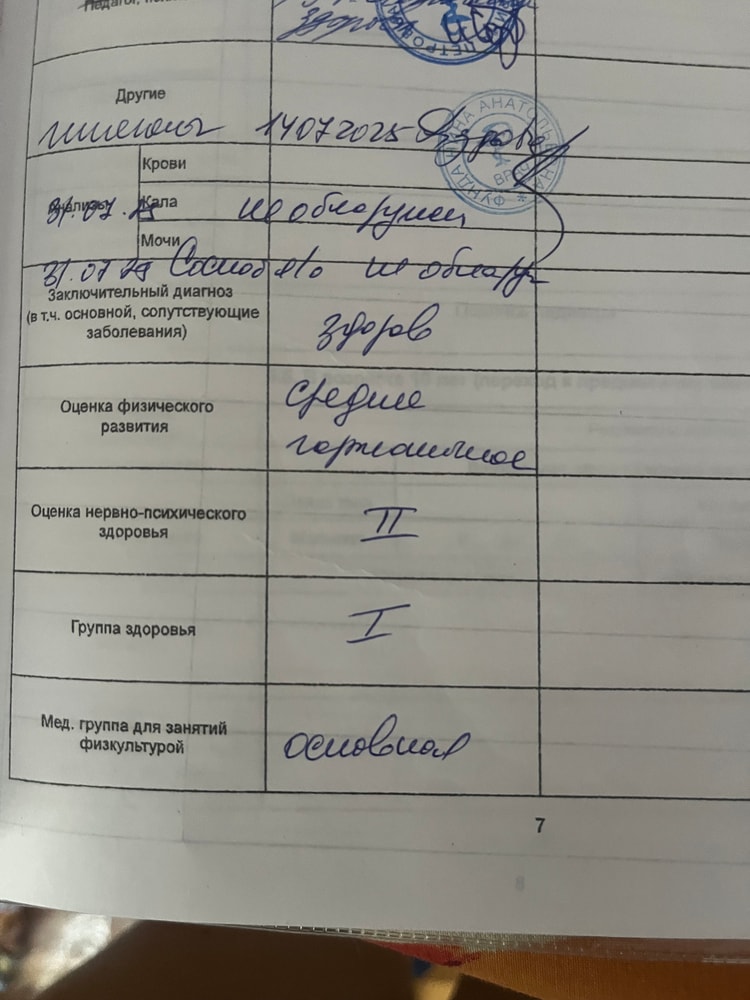 Педагог,
здоров
ПЕТРОВ
Другие
14072025 Здорова
ФУНДА НА АНАТОЛЬЕВНА
ВРАЧ
Крови
Анализы
31.07.25 Кала не обнаружен
Мочи
31.07.25 Соскоб я/г не обнаруж
Заключительный диагноз
(в т.ч. основной, сопутствующие
заболевания)
здоров
Оценка физического
развития
среднее
гармоничное
Оценка нервно-психического
здоровья
II
Группа здоровья
I
Мед. группа для занятий
физкультурой
основная
7
8